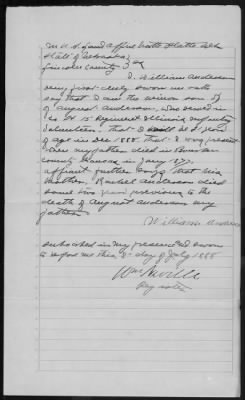 In U. S. Land Office North Platte Neb
State of Nebraska
Lincoln County } ss
I. William Anderson
being first duly sworn on oath
say that I am the minor son of
of August Anderson, who served in
Co. H 15 Regiment Illinois Infantry
Volunteers, that I will be 21 years
of age in Dec 1888. that I was present
when my father died in
county Kansas in Jany 187
affiant further says that his
mother, Rachel Anderson died
some two years previous to the
death of August Anderson my
father
William Anderson
Subscribed in my presence and sworn
to before me this day of July 1888
Wm Neville
Register